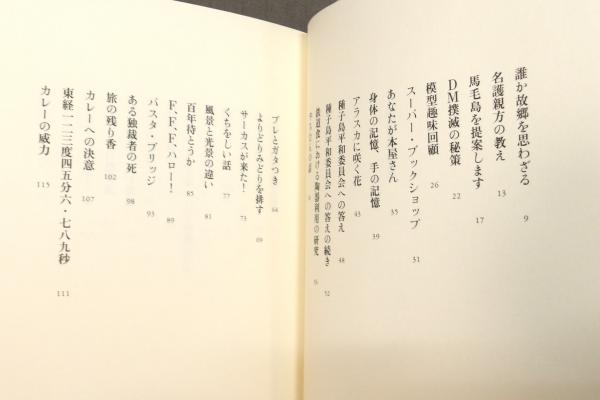 誰か故郷を思わざる 9
名護親方の教え 13
馬毛島を提案します 17
DM撲滅の秘策 22
模型趣味回顧 26
スーパー・ブックショップ 31
あなたが本屋さん 35
身体の記憶、手の記憶 39
アラスカに咲く花 43
種子島平和委員会への答え 48
種子島平和委員会への答えの続き 52
鉄道食における陶器利用の研究 56
ブレとガタつき 64
よりどりみどりを排す 69
サーカスが来た! 73
くちをしい話 77
風景と光景の違い 81
百年待とうか 85
F、F、F、ハロー! 89
パスタ・ブリッジ 93
ある独裁者の死 98
旅の残り香 102
カレーへの決意 107
東経一二三度四五分六・七八九秒 111
カレーの威力 115